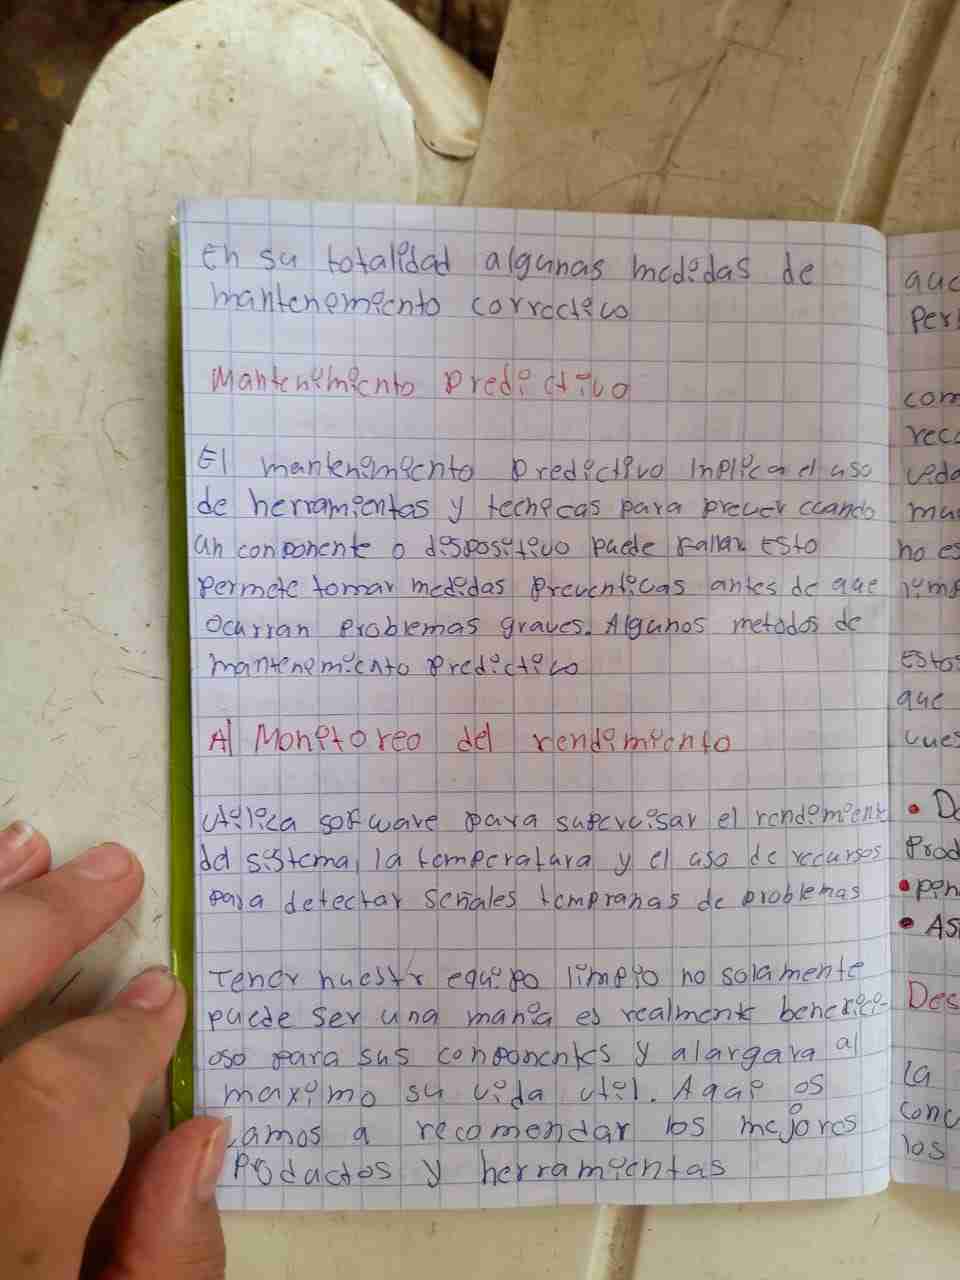 En su totalidad algunas medidas de
mantenemiento correctivo
Mantenimiento Predictivo
El mantenemiento predictivo inplica el uso
de herramientas y technicas para prever cuando
un componente o dispositivo puede fallar Esto
permite tomar medidas preventivas antes de que
ocurran problemas graves. Algunos metodos de
mantenemiento predictivo
A) Monitoreo del rendimiento
Utilica sofware para supervisar el rendimient
del sistema, la temperatura y el uso de recursos
para detectar señales tempranas de problemas
Tener nuestr equipo limpio no solamente
puede ser una mania es realmente benefici-
oso para sus componentes y alargara al
maximo su vida util. Aqui os
vamos a recomendar los mejores
Poductos y herramientas
que
Per
com
rec
veda
ma
no es
limp
Estos
que
cues
• De
Prod
• pen
• As
Des
la
conc
los